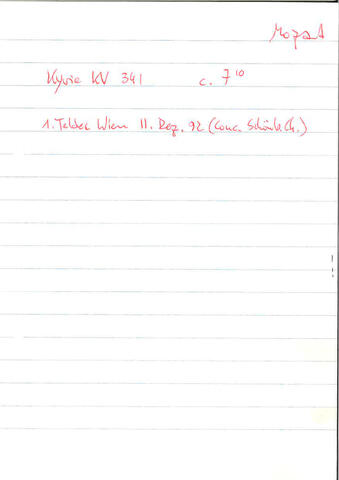 Mozart
Kyrie KV 341 c. 7'10
1. Teldec Wien 11. Dez. 92 (Conc. Schönb. Ch.)